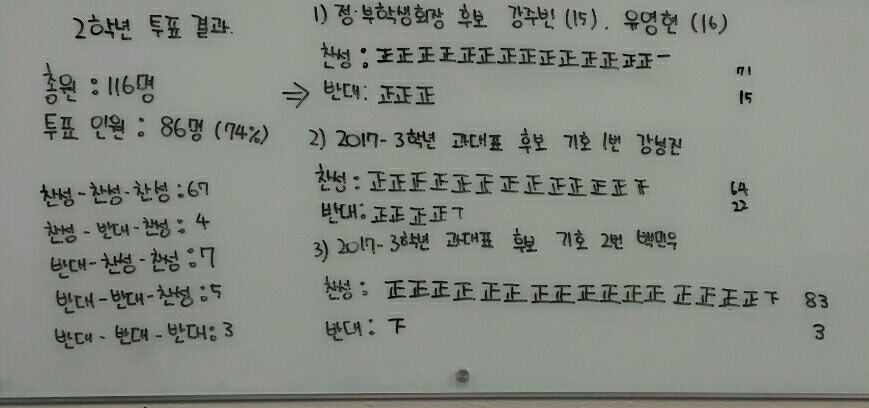 2학년 투표 결과.
총원 : 116명
투표 인원 : 86명 (74%)
찬성-찬성-찬성 : 67
찬성-반대-찬성 : 4
반대-찬성-찬성 : 7
반대-반대-찬성 : 5
반대-반대-반대 : 3
⇒
1) 정·부학생회장 후보 강주빈 (15). 유영현 (16)
찬성 : 正正正正正正正正正正正正正正一 71
반대 : 正正正 15
2) 2017-3학년 과대표 후보 기호 1번 강성진
찬성 : 正正正正正正正正正正正正F 64
반대 : 正正正正T 22
3) 2017-3학년 과대표 후보 기호 2번 백민우
찬성 : 正正正正正正正正正正正正正正正正下 83
반대 : 下 3